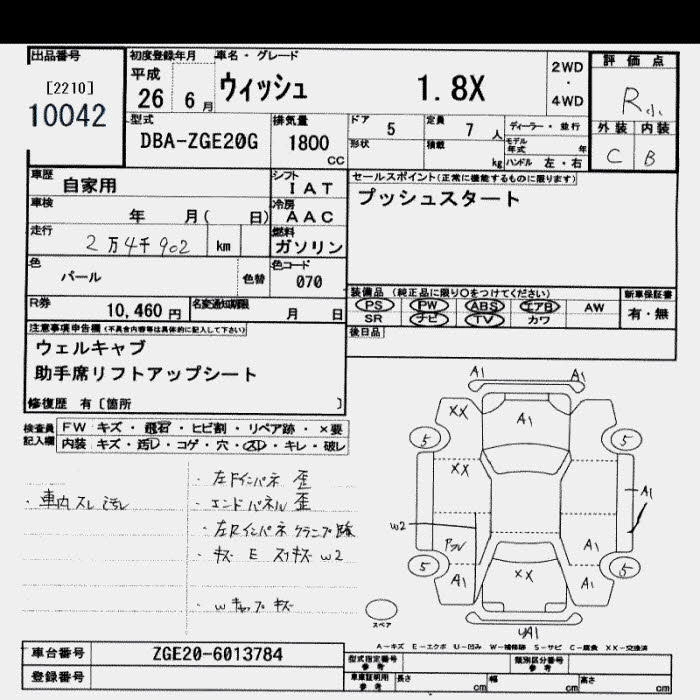 出品番号
[2210]
10042
初度登録年月
平成
26 6月
車名・グレード
ウィッシュ 1.8X
2WD
・
4WD
評価点
R小
外装 内装
C B
型式
DBA-ZGE20G
排気量
1800
cc
ドア 5
定員 7 人
ディーラー・並行
形状
積載 kg
モデル年式 年
ハンドル 左・右
車歴
自家用
シフト
IAT
車検
年 月( 日)
冷房
AAC
走行
2万4千902 km
燃料
ガソリン
色
パール
色替
色コード
070
R券
10,460 円
名変通知期限
月 日
セールスポイント(正常に機能するものに限ります)
プッシュスタート
装備品 (純正品に限り○をつけてください)
PS PW ABS エアB AW
SR ナビ TV カワ
新車保証書
有・無
後日品
注意事項申告欄(不具合内容等は具体的に記入して下さい)
ウェルキャブ
助手席リフトアップシート
修復歴 有[箇所 ]
検査員
記入欄
FW キズ・飛石・ヒビ割・リペア跡・×要
内装 キズ・汚レ・コゲ・穴・スレ・キレ・破レ
・車内スレ汚レ
・左Fインパネ 歪
・エンドパネル 歪
・左Rインパネ クランプ跡
・キズ E スリキズ W2
・Wキャップ キズ
A1 A1
XX A1
5 5
XX
A1
W2
Pフレ A1
5 5
A1 XX A1
スペア
4A1
A-キズ E-エクボ U-凹み W-補修跡 S-サビ C-腐食 XX-交換済
車台番号
ZGE20-6013784
登録番号
型式指定番号
参考
類別区分番号
参考
車庫証明用
参考
長さ cm
幅 cm
高さ cm